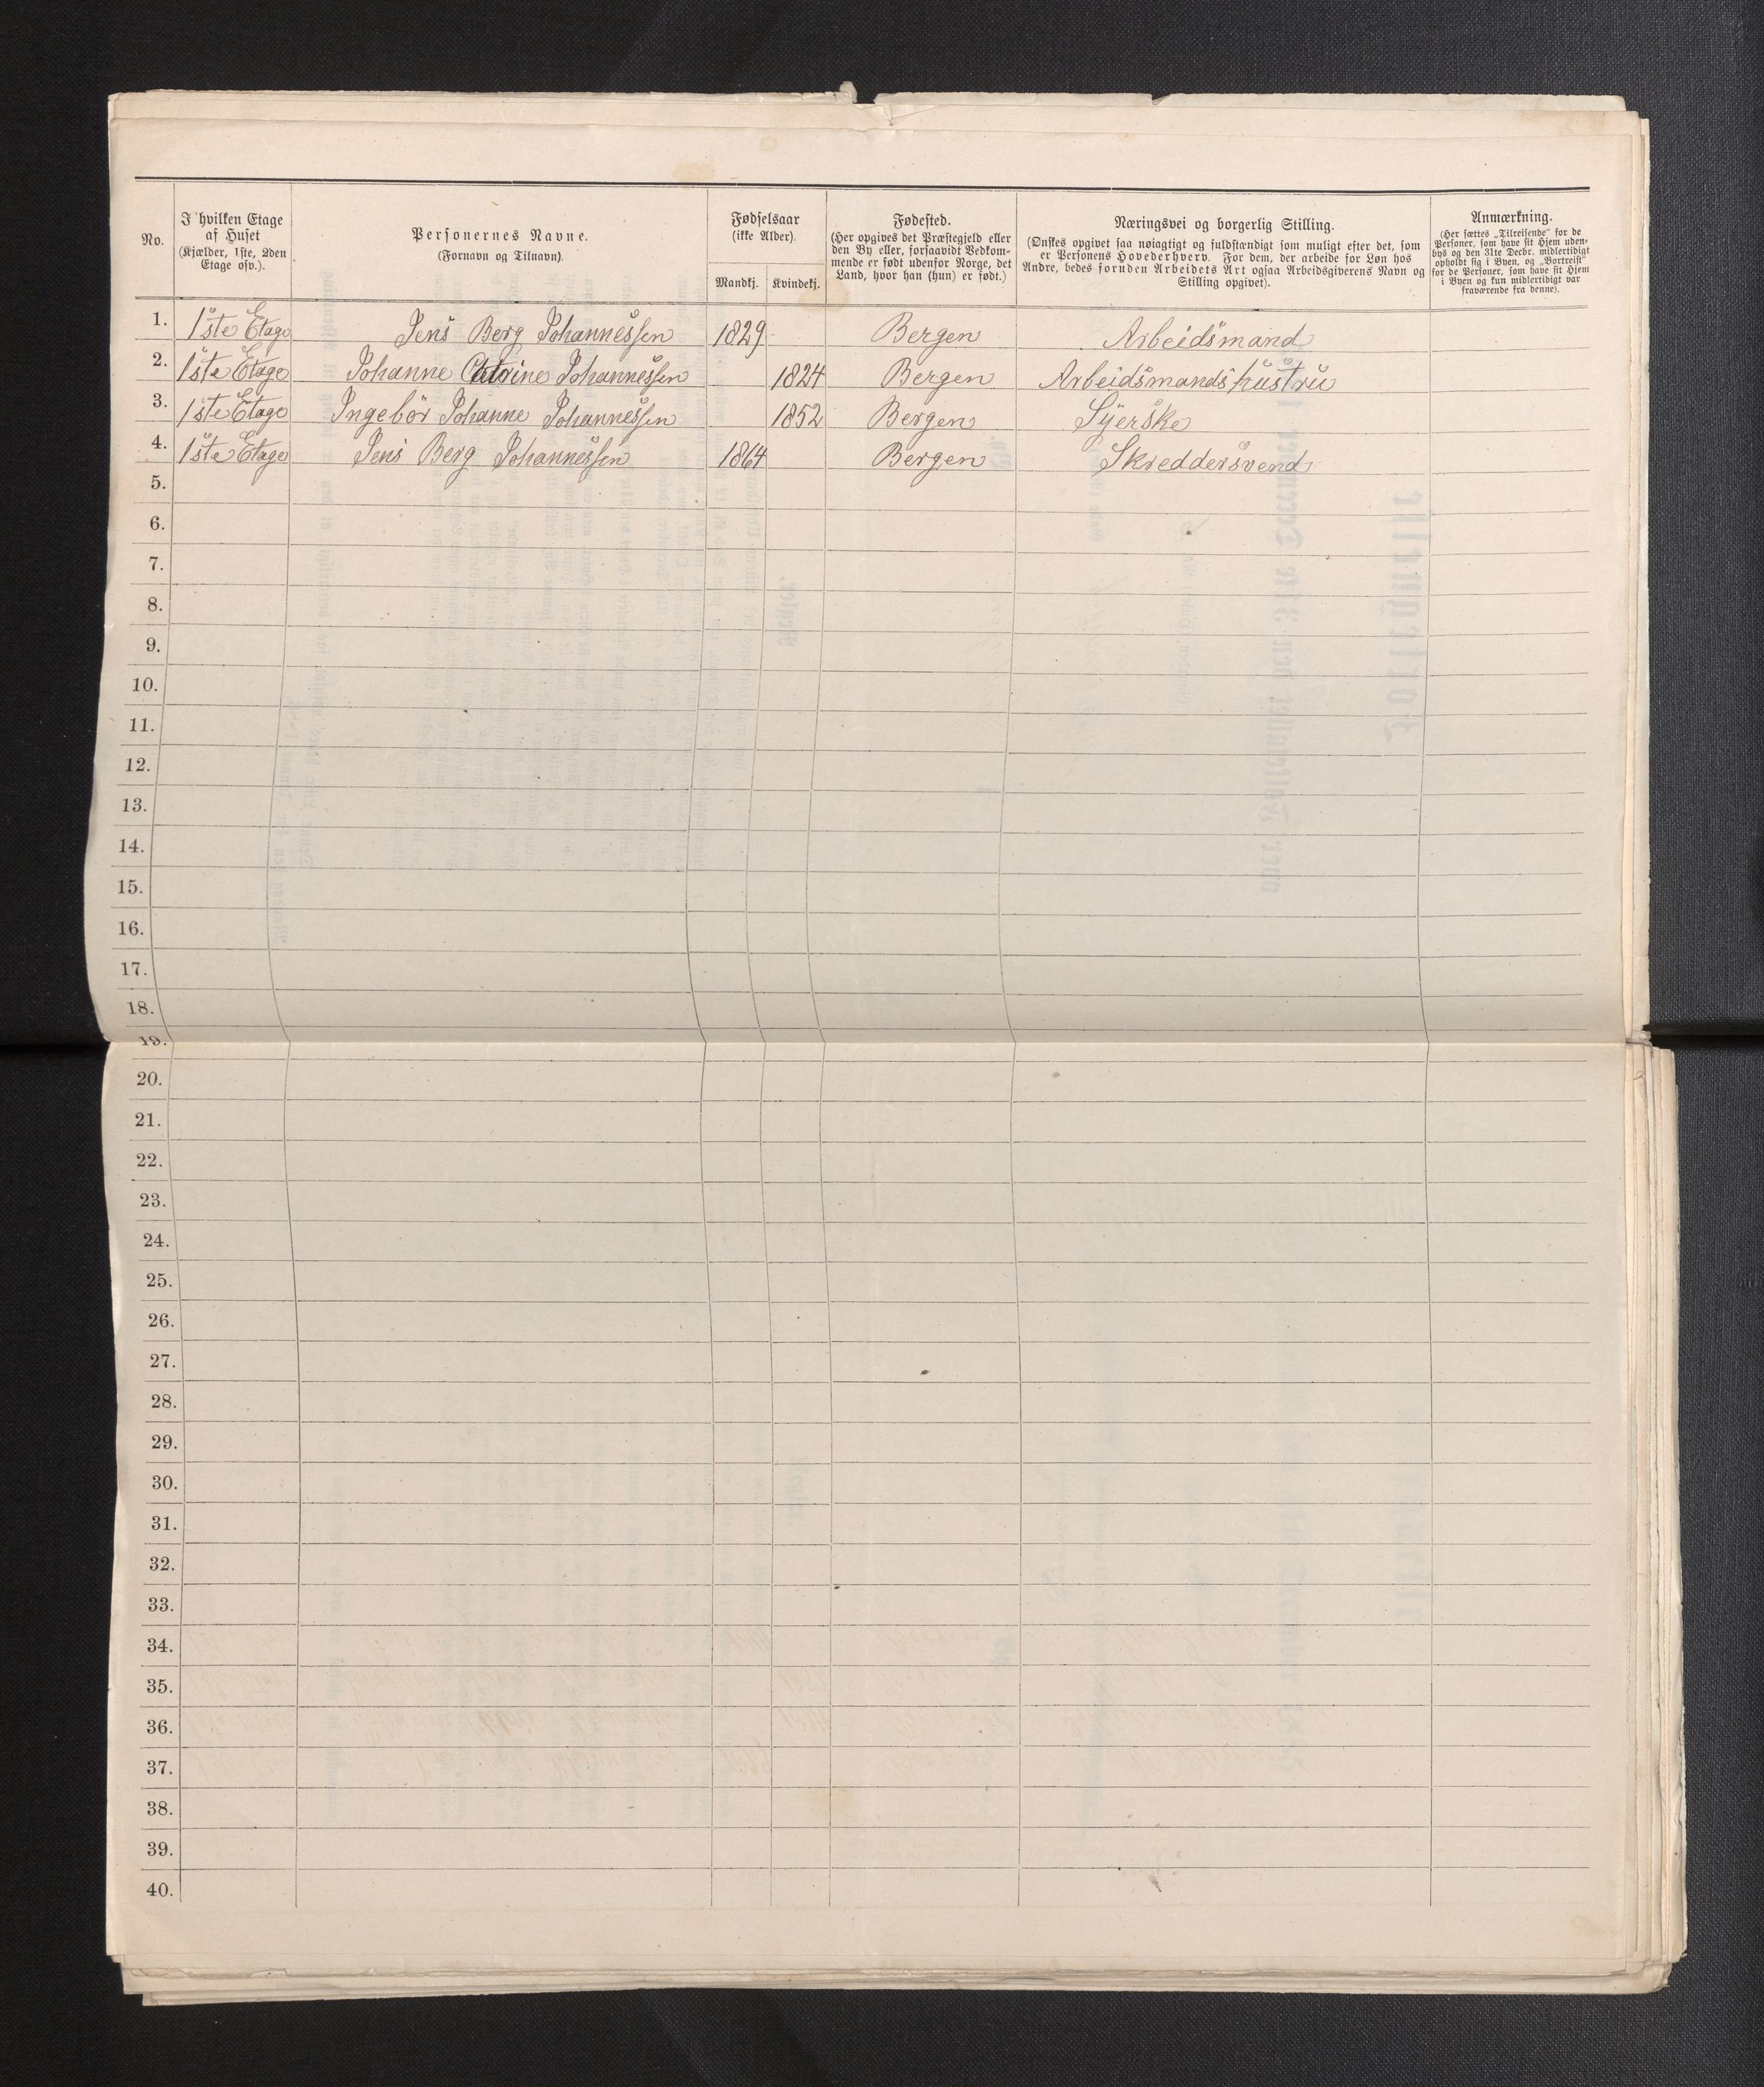 No.
I hvilken Etage
af Huset
(Kjælder, 1ste, 2den
Etage osv.).
Personernes Navne.
(Fornavn og Tilnavn).
Fødselsaar
(ikke Alder).
Mandkj.
Kvindekj.
Fødested.
(Her opgives det Præstegjeld eller
den By eller, forsaavidt Vedkom-
mende er født udenfor Norge, det
Land, hvor han (hun) er født.)
Næringsvei og borgerlig Stilling.
(Ønskes opgivet saa nøiagtigt og fuldstændigt som muligt efter det, som
er Personens Hovederhverv. For dem, der arbeide for Løn hos
Andre, bedes foruden Arbeidets Art ogsaa Arbeidsgiverens Navn og
Stilling opgivet).
Anmærkning.
(Her sættes „Tilreisende" for de
Personer, som have sit Hjem uden-
bys og den 31te Decbr. midlertidigt
opholdt sig i Byen, og „Bortreist"
for de Personer, som have sit Hjem
i Byen og kun midlertidigt var
fraværende fra denne).
1. 1ste Etage Jens Berg Johannessen 1829 Bergen Arbeidsmand
2. 1ste Etage Johanne Johannessen 1824 Bergen Arbeidsmands hustru
3. 1ste Etage Ingebør Johanne Johannessen 1852 Bergen Syerske
4. 1ste Etage Jens Berg Johannessen 1864 Bergen Skreddersvend
5.
6.
7.
8.
9.
10.
11.
12.
13.
14.
15.
16.
17.
18.
19.
20.
21.
22.
23.
24.
25.
26.
27.
28.
29.
30.
31.
32.
33.
34.
35.
36.
37.
38.
39.
40.